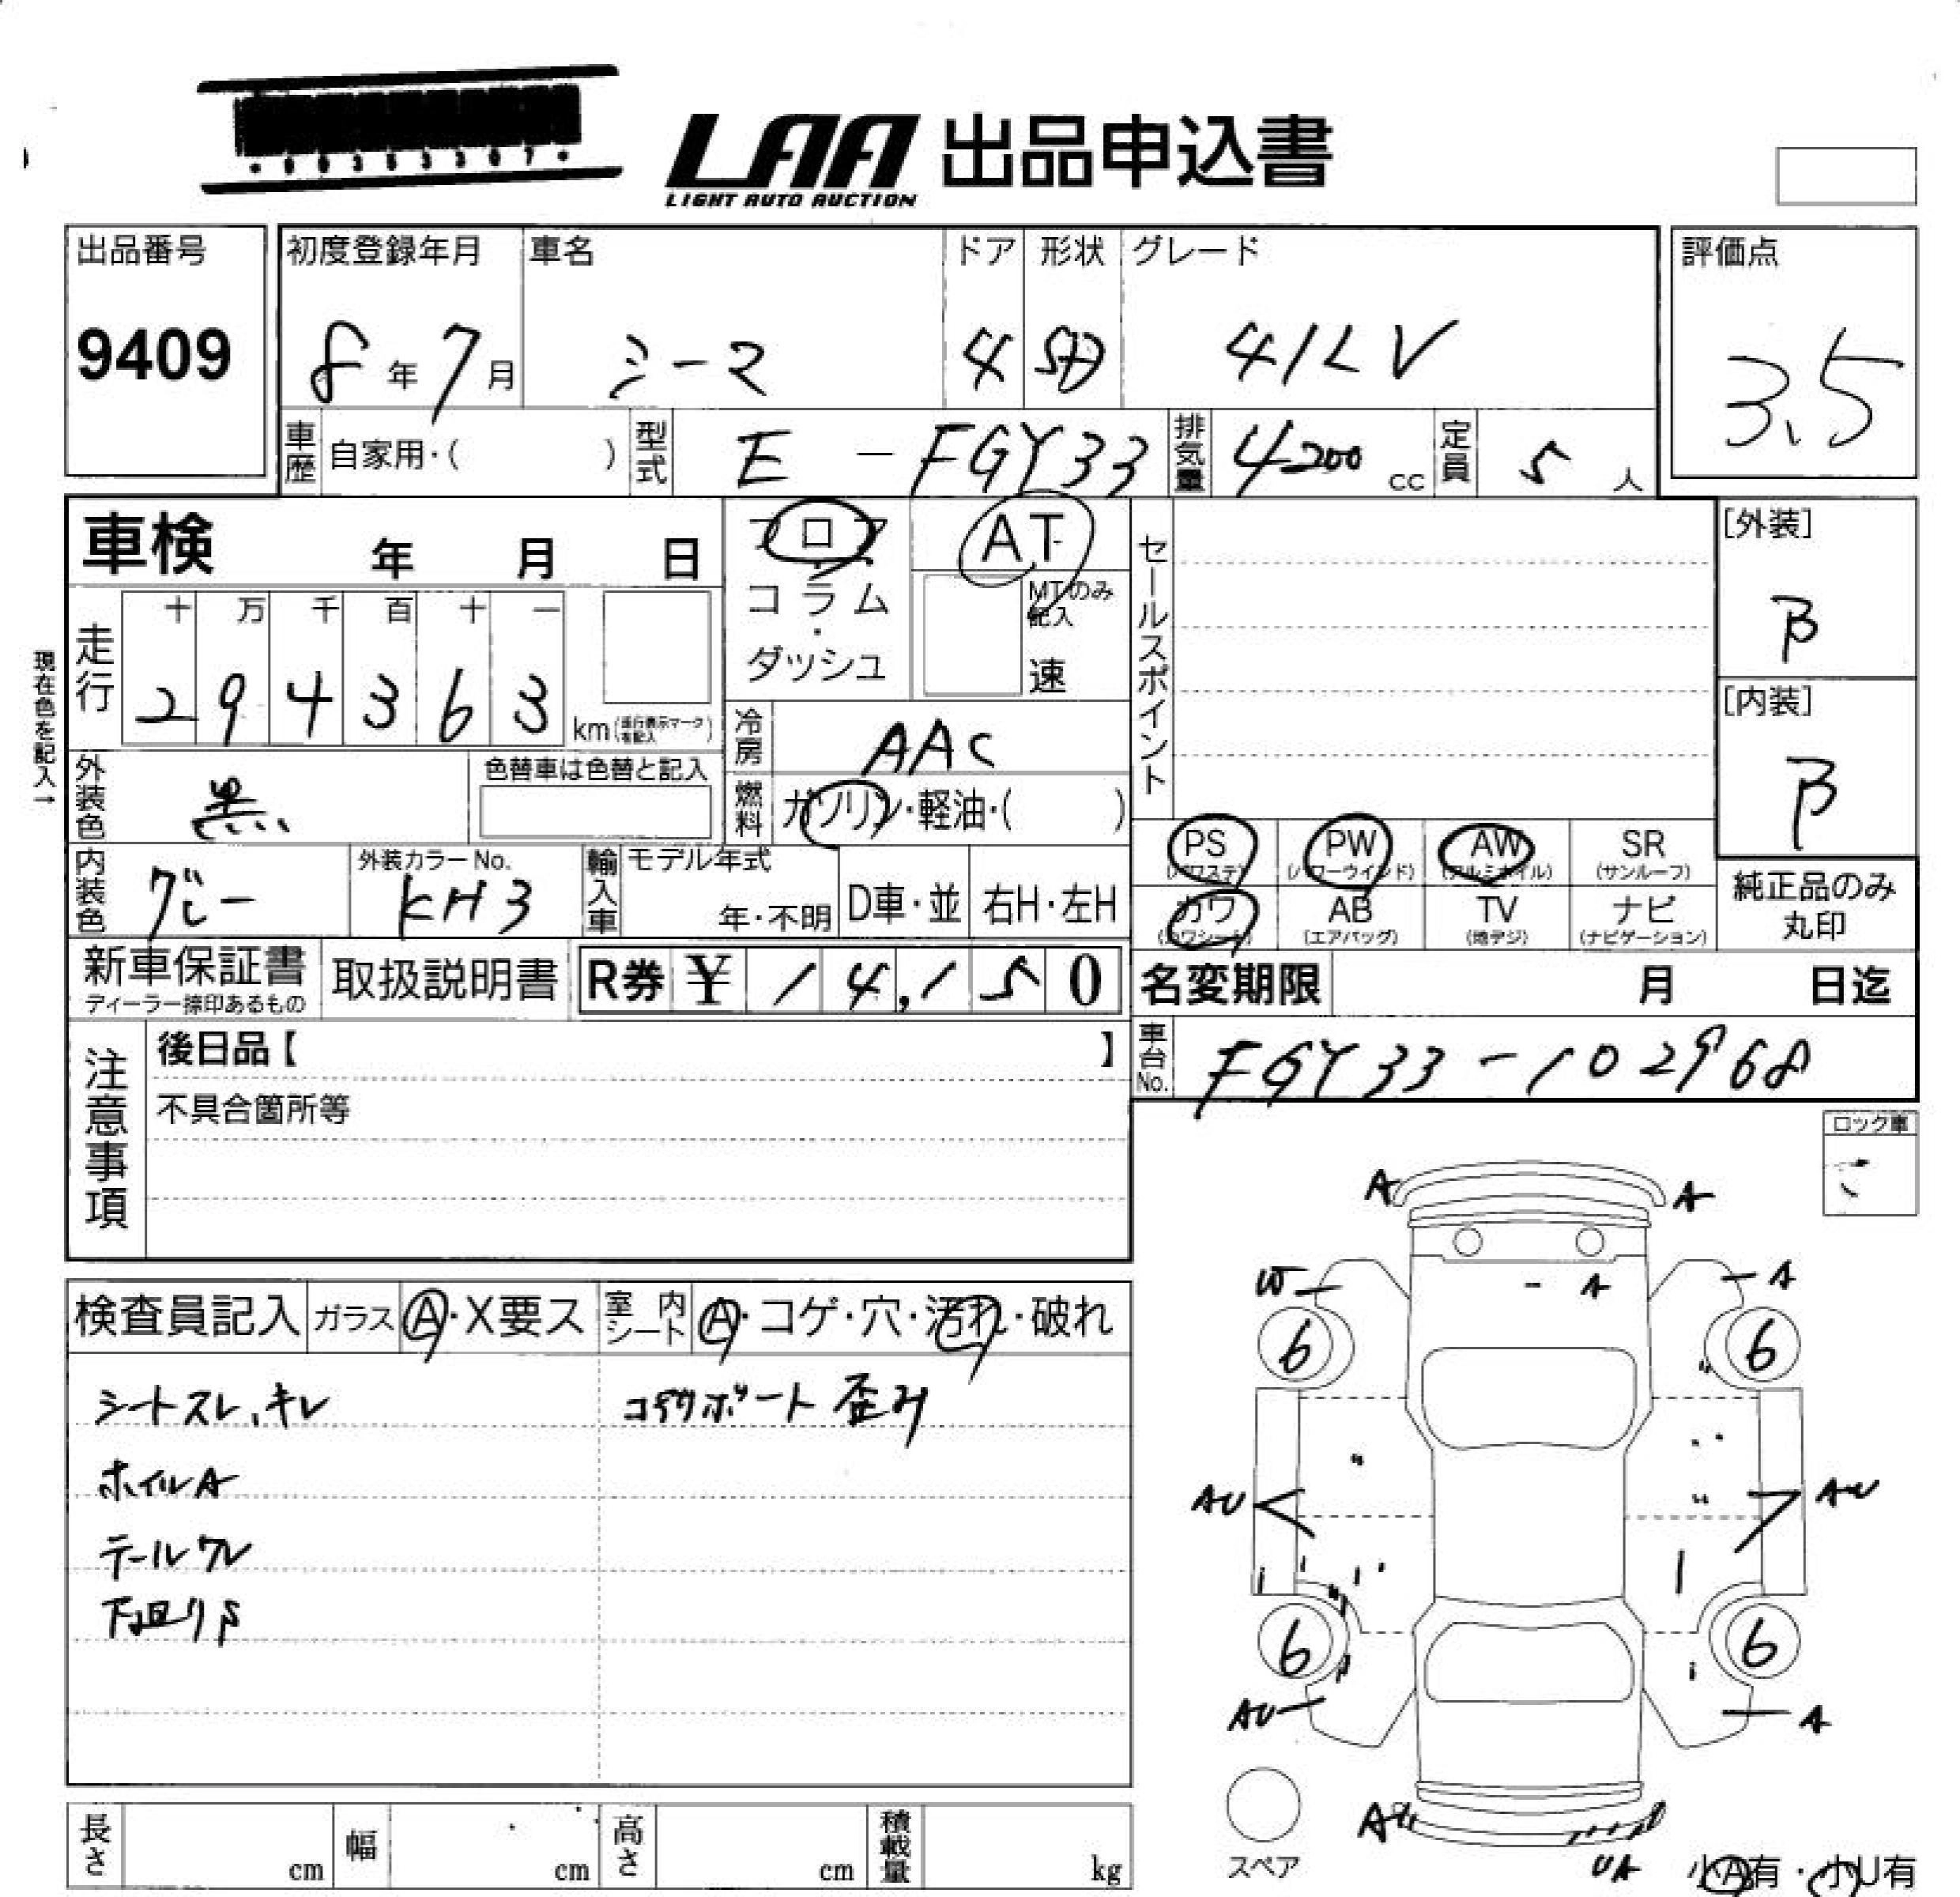 LAA 出品申込書
LIGHT AUTO AUCTION
出品番号
9409
初度登録年月 車名 ドア 形状 グレード
8年7月 シーマ 4 SD 41LV
評価点
3.5
車歴 自家用・( ) 型式 E-FGY33 排気量 4200cc 定員 5人
車検 年 月 日
フロア・コラム・ダッシュ
AT
MTのみ記入
速
セールスポイント
[外装]
B
[内装]
B
現在色を記入→
走行
十 万 千 百 十 一
2 9 4 3 6 3 km
冷房 AAC
外装色 黒 色替車は色替と記入
燃料 ガソリン・軽油・( )
内装色 グレー 外装カラーNo. KH3
輸入車 モデル年式 年・不明 D車・並 右H・左H
PS (パワステ) PW (パワーウインド) AW (アルミホイル) SR (サンルーフ)
カワ (カワシート) AB (エアバッグ) TV (地デジ) ナビ (ナビゲーション)
純正品のみ
丸印
新車保証書 取扱説明書 R券 ¥14,150
ディーラー捺印あるもの
名変期限 月 日迄
注意事項
後日品【 】
不具合箇所等
車台No. FGY33-102968
ロック車
検査員記入 ガラス A・X要ス 室内シート A・コゲ・穴・汚れ・破れ
シートスレ、キレ
ホイルA
テールワレ
下回りS
歪み
A A
W A A
6 6
AU AU
6 6
AU A
スペア
UA
小A有・小U有
長さ cm 幅 cm 高さ cm 積載量 kg